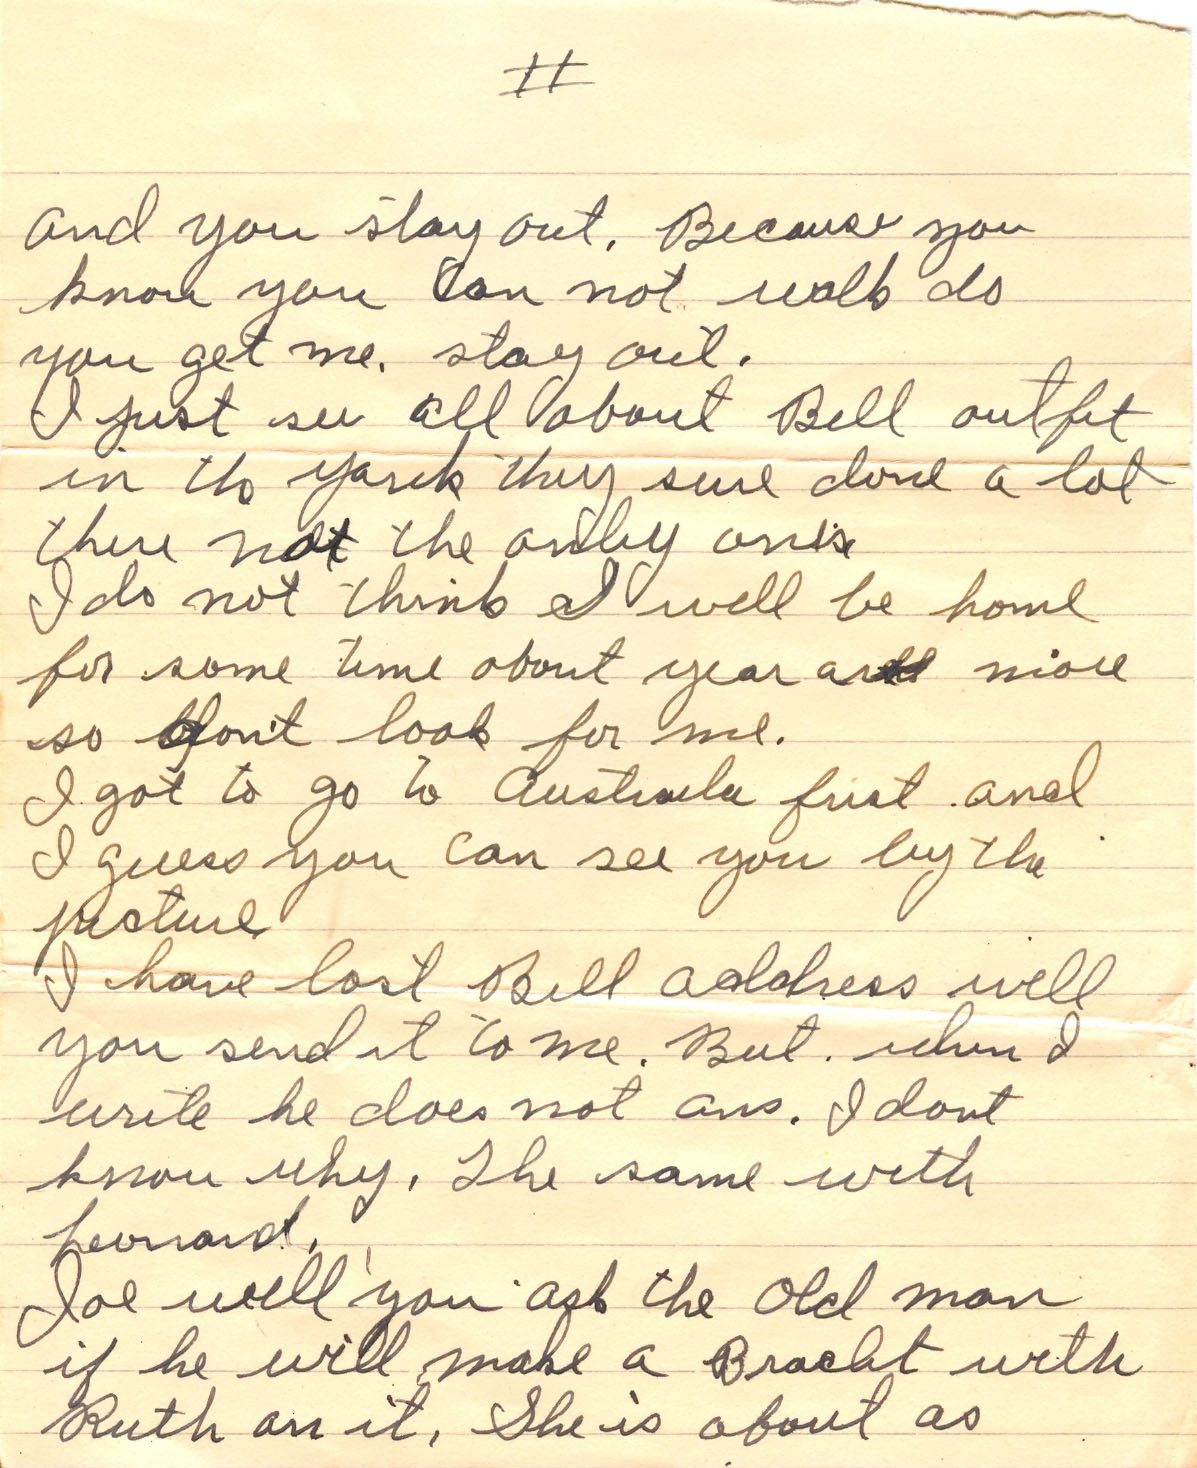 II
and you stay out. Because you
know you can not walk do
you get me. stay out.
I just see all about Bill outfit
in the yank they sure done a lot
there not the only ones
I do not think I well be home
for some time about year are more
so don't look for me.
I got to go to Austraila frist and
I guess you can see you by the
picture
I have lost Bill address well
you send it to me. But. when I
write he does not ans. I dont
know why. The same with
bernard.
Joe well you ask the Old man
if he will make a Braclet with
Ruth on it. She is about as